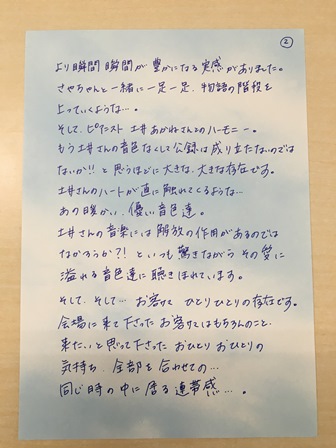 ②
より瞬間瞬間が豊かになる実感がありました。
さやちゃんと一緒に一足一足、物語の階段を
上っていくような…。
そして、ピアニスト 土井あかねさんとのハーモニー。
もう土井さんの音色なくして公録は成り立たないのでは
ないか!! と思うほどに大きな、大きな存在です。
土井さんのハートが直に触れてくるような…
あの暖かい、優しい音色達。
土井さんの音楽には解放の作用があるのでは
なかろうか?! といつも驚きながら その愛に
溢れる音色達に聴きほれています。
そして、そして… お客さま ひとりひとりの存在です。
会場に来て下さった お客さまはもちろんのこと、
来たいと思って下さった おひとりおひとりの
気持ち、全部を合わせての…
同じ時の中に居る連帯感…。